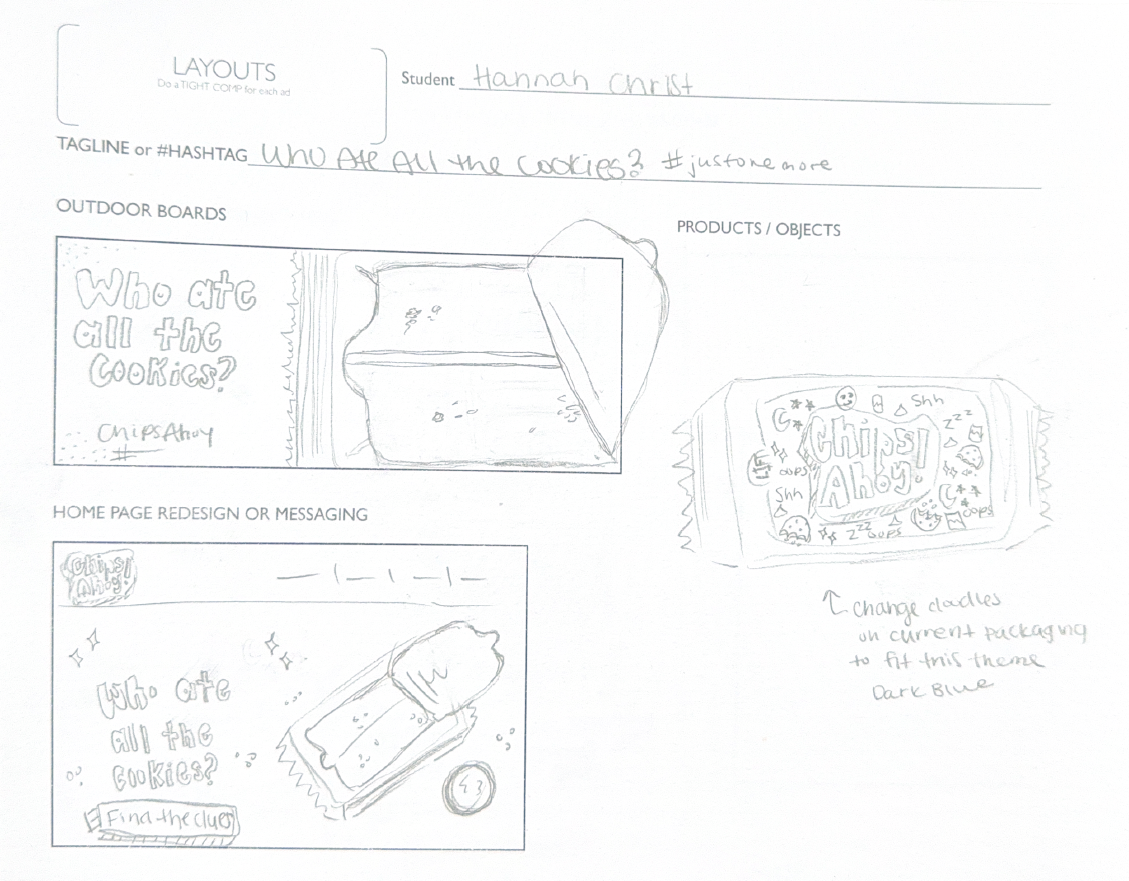 LAYOUTS
Do a TIGHT COMP for each ad
Student Hannah Christ
TAGLINE or #HASHTAG Who Ate All the Cookies? #justonemore
OUTDOOR BOARDS
Who ate
all the
Cookies?
ChipsAhoy
#
PRODUCTS / OBJECTS
Shh
zzz
Chips!
Ahoy!
oops
Shh
oops
zzz
oops
change doodles
on current packaging
to fit this theme
Dark Blue
HOME PAGE REDESIGN OR MESSAGING
Chips!
Ahoy!
Who ate
all the
cookies?
Find the clues